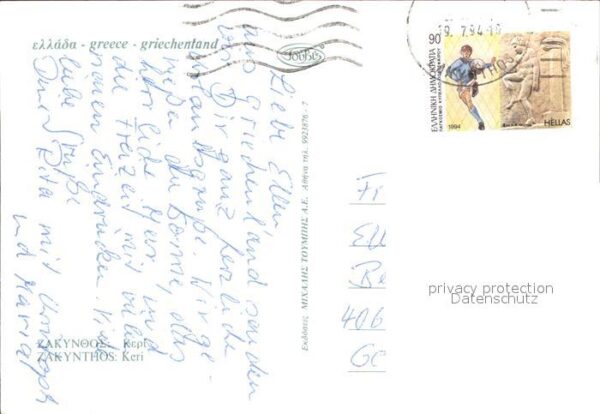 ελλάδα - greece - griechenland
Liebe Ellen,
aus Griechenland senden
wir Dir ganz herzliche
Urlaubsgrüße. Wir ge-
nießen die Sonne, das
herrliche Meer und
die Freizeit mit vielen
neuen Eindrücken.
liebe Grüße
Deine Rita mit
und Maria
ΖΑΚΥΝΘΟΣ: Κερί
ZAKYNTHOS: Keri
Εκδόσεις ΜΙΧΑΛΗΣ ΤΟΥΜΠΗΣ Α.Ε. Αθήνα τηλ. 9923876 - 7
9. 7. 94
ΕΛΛΗΝΙΚΗ ΔΗΜΟΚΡΑΤΙΑ 90
1994
HELLAS
Fr
Ell
Be
406
Ge
privacy protection
Datenschutz